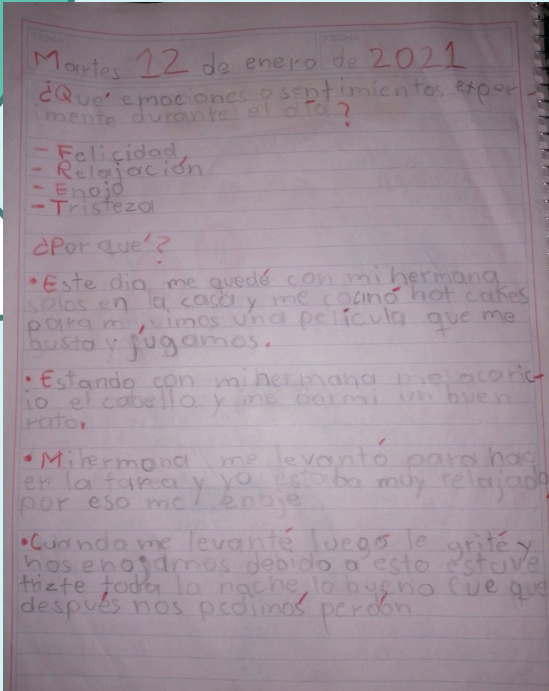 Martes 12 de enero de 2021
¿Qué emociones o sentimientos exper-
imente durante el día?
- Felicidad
- Relajación
- Enojo
- Tristeza
¿Por que'?
•Este dia me quedé con mi hermana
solos en la caca y me cocinó hot cakes
para mi, vimos una película que me
gusta y jugamos.
•Estando con mi hermana me acaric-
io el cabello y me dormi un buen
rato.
•Mi hermana me levantó para hac
er la tarea y yo estaba muy relajado
por eso me enoje
•Cuando me levanté luego le grité y
nos enojamos debido a esto estuve
trizte toda la noche, lo bueno fue que
después nos pedimos perdón